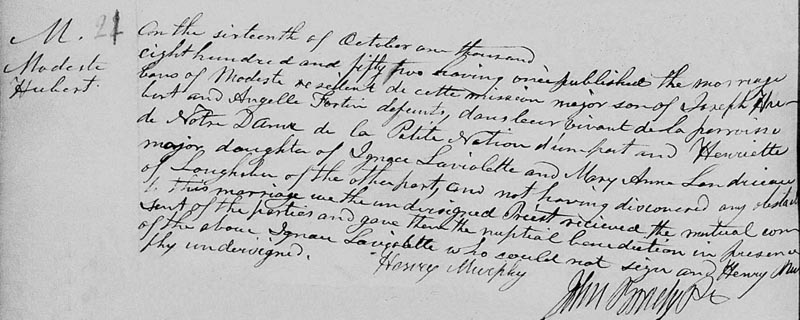 M. 21
Modeste
Hubert.
On the sixteenth of October one thousand
eight hundred and fifty two having once published the marriage
bans of Modeste resident de cette mission major son of Joseph Hu-
bert and Angelle Fortin defunts, dans leur vivant de la parroisse
de Notre Dame de la Petite Nation d'une part and Henriette
major daughter of Ignace Laviolette and Mary Anne Landrieau
of Loughaber of the other part, and not having discovered any obstacle
to this marriage we the undersigned Priest recieved the mutual con
sent of the parties and gave them the nuptial benediction in presence
of the above Ignace Laviolette who could not sign and Henry Mur
phy undersigned.
Henry Murphy
John Brady Pr